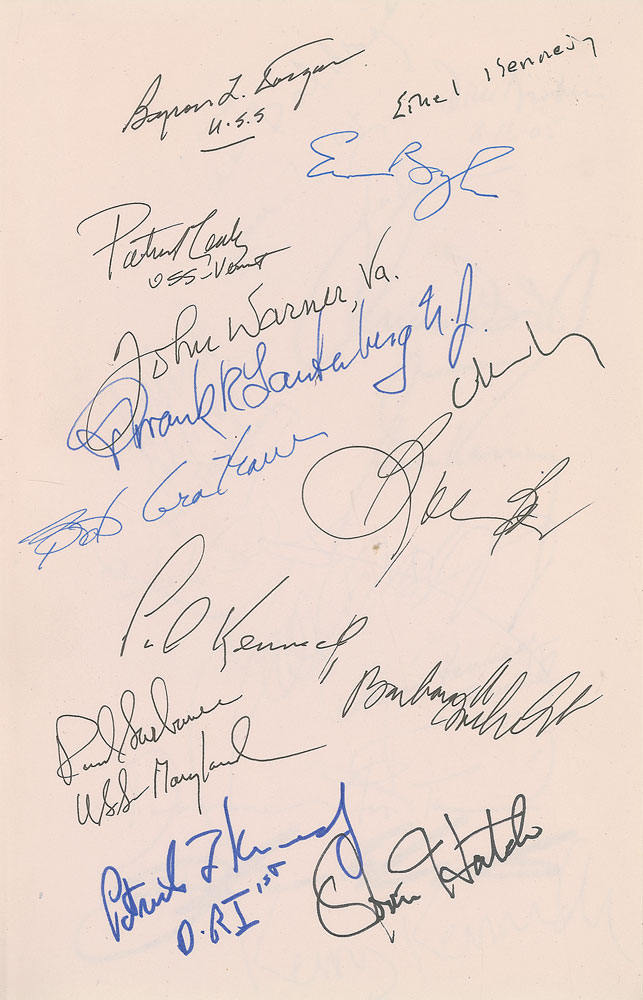 Byron L. Dorgan
U.S.S
Ethel Kennedy
Evan Bayh
Patrick Leahy
USS-Vermont
John Warner, Va.
Frank R Lautenberg N.J.
Bob Graham
Kennedy
Paul Sarbanes
USS Maryland
Barbara A Mikulski
Patrick J Kennedy
D-RI 1st
Orrin Hatch